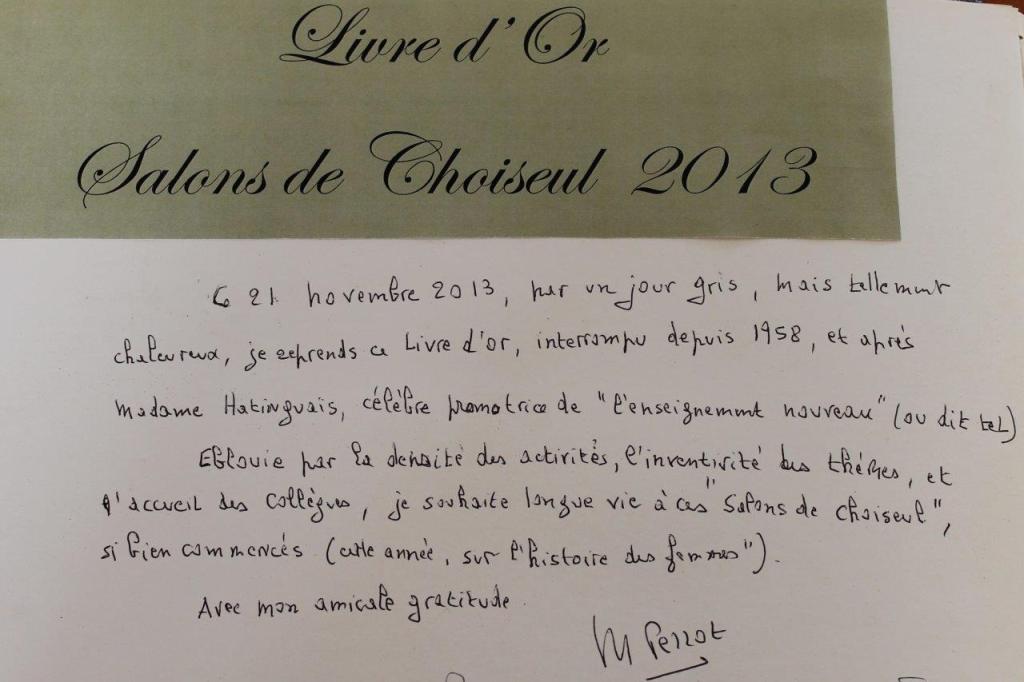 Livre d'Or
Salons de Choiseul 2013
Ce 21 novembre 2013, par un jour gris, mais tellement
chaleureux, je reprends ce Livre d'or, interrompu depuis 1958, et après
Madame Hatinguais, célèbre promotrice de "l'enseignement nouveau" (ou dit tel)
Eblouie par la densité des activités, l'inventivité des thèmes, et
l'accueil des collègues, je souhaite longue vie à ces "Salons de Choiseul",
si bien commencés (cette année, sur l'histoire des femmes").
Avec mon amicale gratitude.
M Perrot